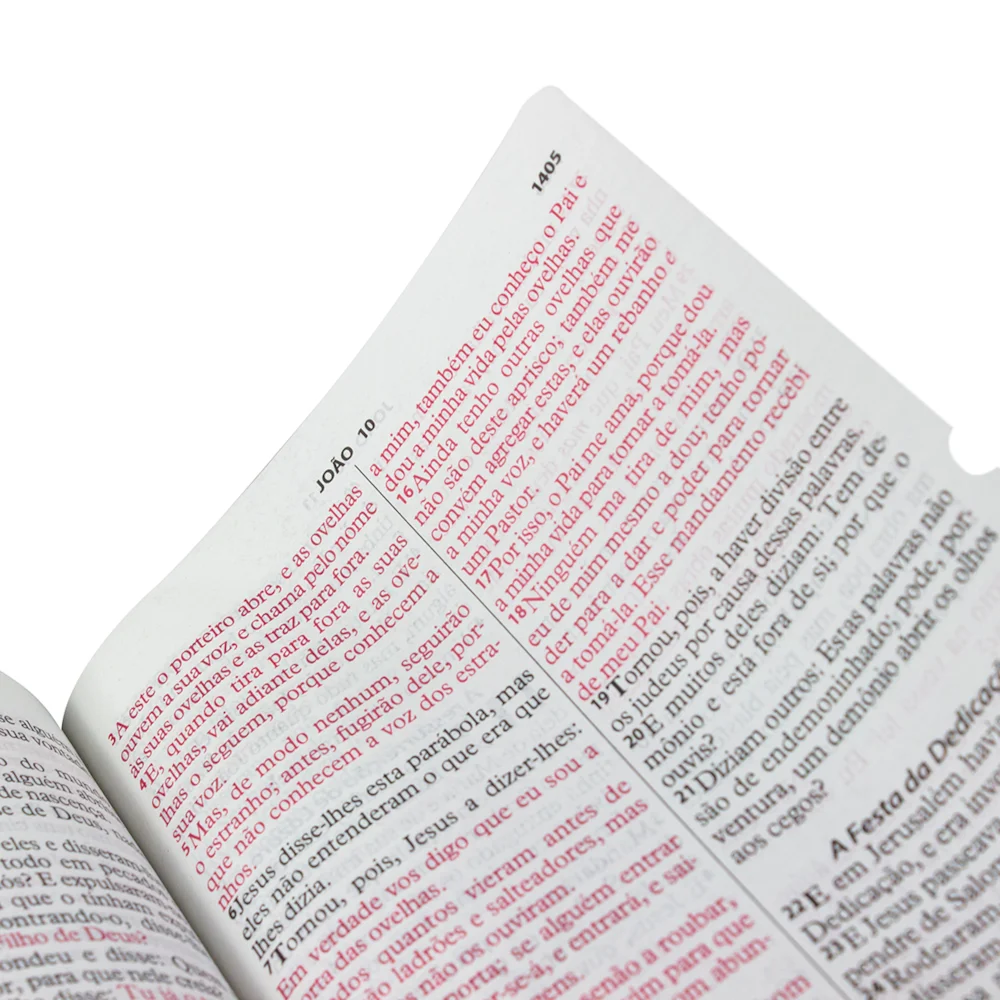 se algué
sua vont
do mu
alguém abri
de nascença,
de Deus, na
eles e disseram
todo em peca
ós? E expulsa
que o tinham ex
ontrando-o, disse
Filho de Deus?
ondeu e disse: Que
r, para que nele creia?
disse: Tu já
JOÃO 10
1405
3A este o porteiro abre, e as ovelhas
ouvem a sua voz, e chama pelo nome
às suas ovelhas e as traz para fora.
4E, quando tira para fora as suas
ovelhas, vai adiante delas, e as ove-
lhas o seguem, porque conhecem a
sua voz.
5Mas, de modo nenhum, seguirão
o estranho; antes, fugirão dele, por-
que não conhecem a voz dos estra-
nhos.
6Jesus disse-lhes esta parábola, mas
eles não entenderam o que era que
lhes dizia.
7Tornou, pois, Jesus a dizer-lhes:
Em verdade vos digo que eu sou a
orta das ovelhas.
dos quantos vieram antes de
ladrões e salteadores, mas
s não os ouviram.
orta; se alguém entrar
r-se-á, e entrará, e sai-
ens.
senão a roubar,
im para que
om abun-
a mim, também eu conheço o Pai e
dou a minha vida pelas ovelhas.
16Ainda tenho outras ovelhas que
não são deste aprisco; também me
convém agregar estas, e elas ouvirão
a minha voz, e haverá um rebanho e
um Pastor.
17Por isso, o Pai me ama, porque dou
a minha vida para tornar a tomá-la.
18Ninguém ma tira de mim, mas
eu de mim mesmo a dou; tenho po-
der para a dar e poder para tornar
a tomá-la. Esse mandamento recebi
de meu Pai.
19Tornou, pois, a haver divisão entre
os judeus por causa dessas palavras.
20E muitos deles diziam: Tem de-
mônio e está fora de si; por que o
ouvis?
21Diziam outros: Estas palavras não
são de endemoninhado; pode, por-
ventura, um demônio abrir os olhos
aos cegos?
A Festa da Dedicaç
22E em Jerusalém havi
Dedicação, e era inve
23E Jesus passeava
pendre de Salom
24Rodearam
disseram